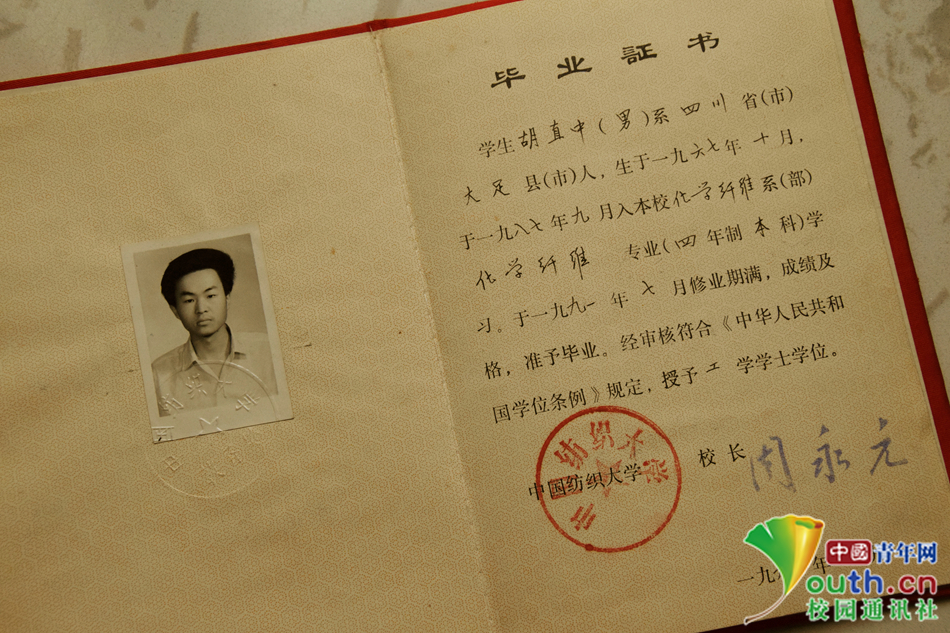 毕业証书
学生胡直中(男)系四川省(市)
大足县(市)人，生于一九六七年十月，
于一九八七年九月入本校化学纤维系(部)
化学纤维 专业(四年制本科)学
习。于一九九一年七月修业期满，成绩及
格，准予毕业。经审核符合《中华人民共和
国学位条例》规定，授予工学学士学位。
中国纺织大学 校长 周永元
中国纺织大学
一九 年
中國青年网
youth.cn
校园通讯社